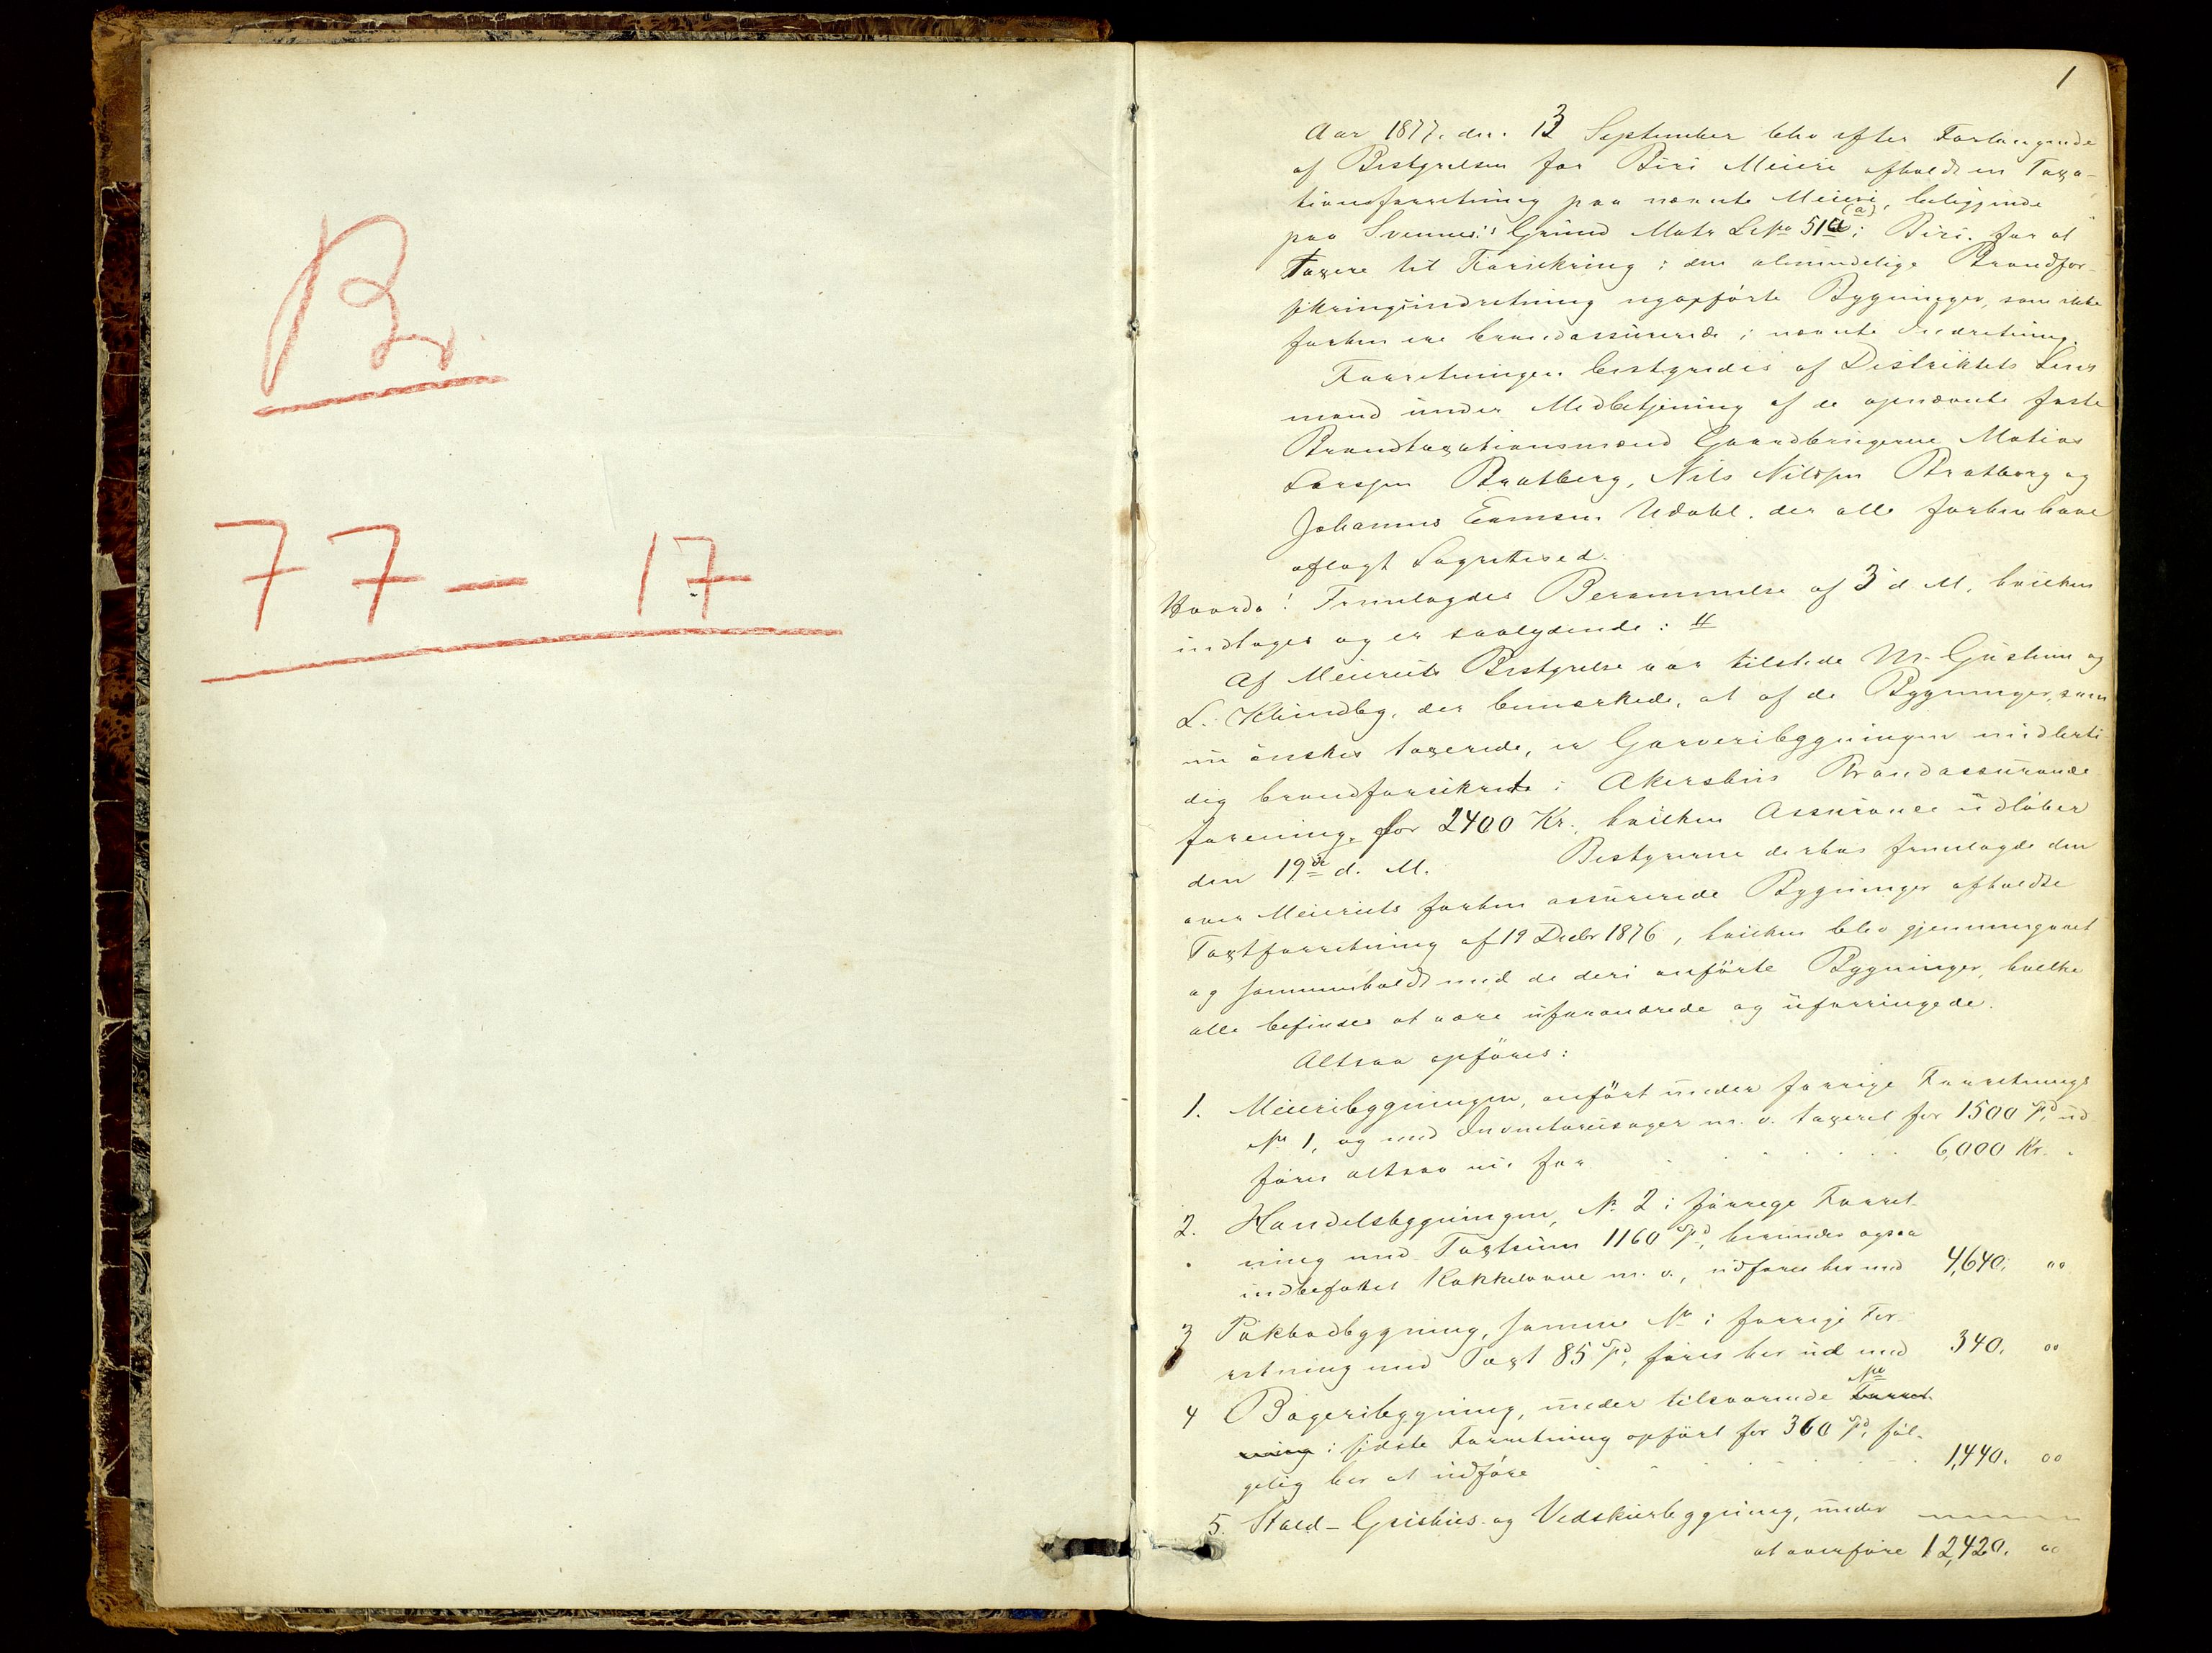 Br.
77 - 17
1
Aar 1877. den 13 September blev efter Forlangende
af Bestyrelsen for Biri Meieri afholdt en Taxa-
tionsforretning paa nævnte Meieri, beliggende
paa Svennes's Grund Matr Løpe No 51a (a) i Biri. for at
Taxere til Forsikring i den almindelige Brandfor-
sikringsindretning nyopførte Bygninger, som ikke
forhen ere brandassurerede i nævnte Indretning.
Forretningen bestyredes af Distriktets Lens
mand under Medbetjening af de opnævnte faste
Brandtaxationsmænd Gaardbrugerne Matias
Larsen Bratberg, Nils Nilssen Bratberg og
Johannes Evensen Udahl. der alle forhen have
aflagt Lagrettesed.
Hvorda! Fremlagdes Berammelse af 3 d M, hvilken
indtages og er saalydende: #
Af Meieriets Bestyrelse var tilstede M. og
L. Klundby, der bemærkede, at af de Bygninger, som
nu ønskes taxerede, er Garveribygningen midlerti
dig brandforsikret i Akershus Brandassurance
forening for 2400 Kr., hvilken Assurance udløber
den 19de d. M. Bestyrerne derhos fremlagde den
over Meieriets forhen assurerede Bygninger afholdte
Taxtforretning af 19 Decbr 1876, hvilken blev gjennemgaaet
og sammenholdt med de deri anførte Bygninger, hvilke
alle befindes at være uforandrede og uforringede.
Altsaa opføres:
1. Meieribygningen, anført under forrige Forretnings
No 1, og med Inventariesager m. v. taxeret for 1500 Spd, ud
føres altsaa nu for . . . . . . 6,000 Kr. .
2. Handelsbygningen, No 2 i forrige Forret-
ning med Taxtsum 1160 Spd, herunder ogsaa
indbefattet Kakkelovne m. v., udføres her med 4,640. 00
3 Pakbodbygning, samme No i forrige For-
retning med Taxt 85 Spd, føres her ud med 340. 00
4 Bageribygning, under tilsvarende Forret No
ning i sidste Forretning opført for 360 Spd, føl-
gelig her at udføre . . . . . 1,440. 00
5. Stald- Grishus- og Vedskurbygning, under
at overføre 12,420. 00